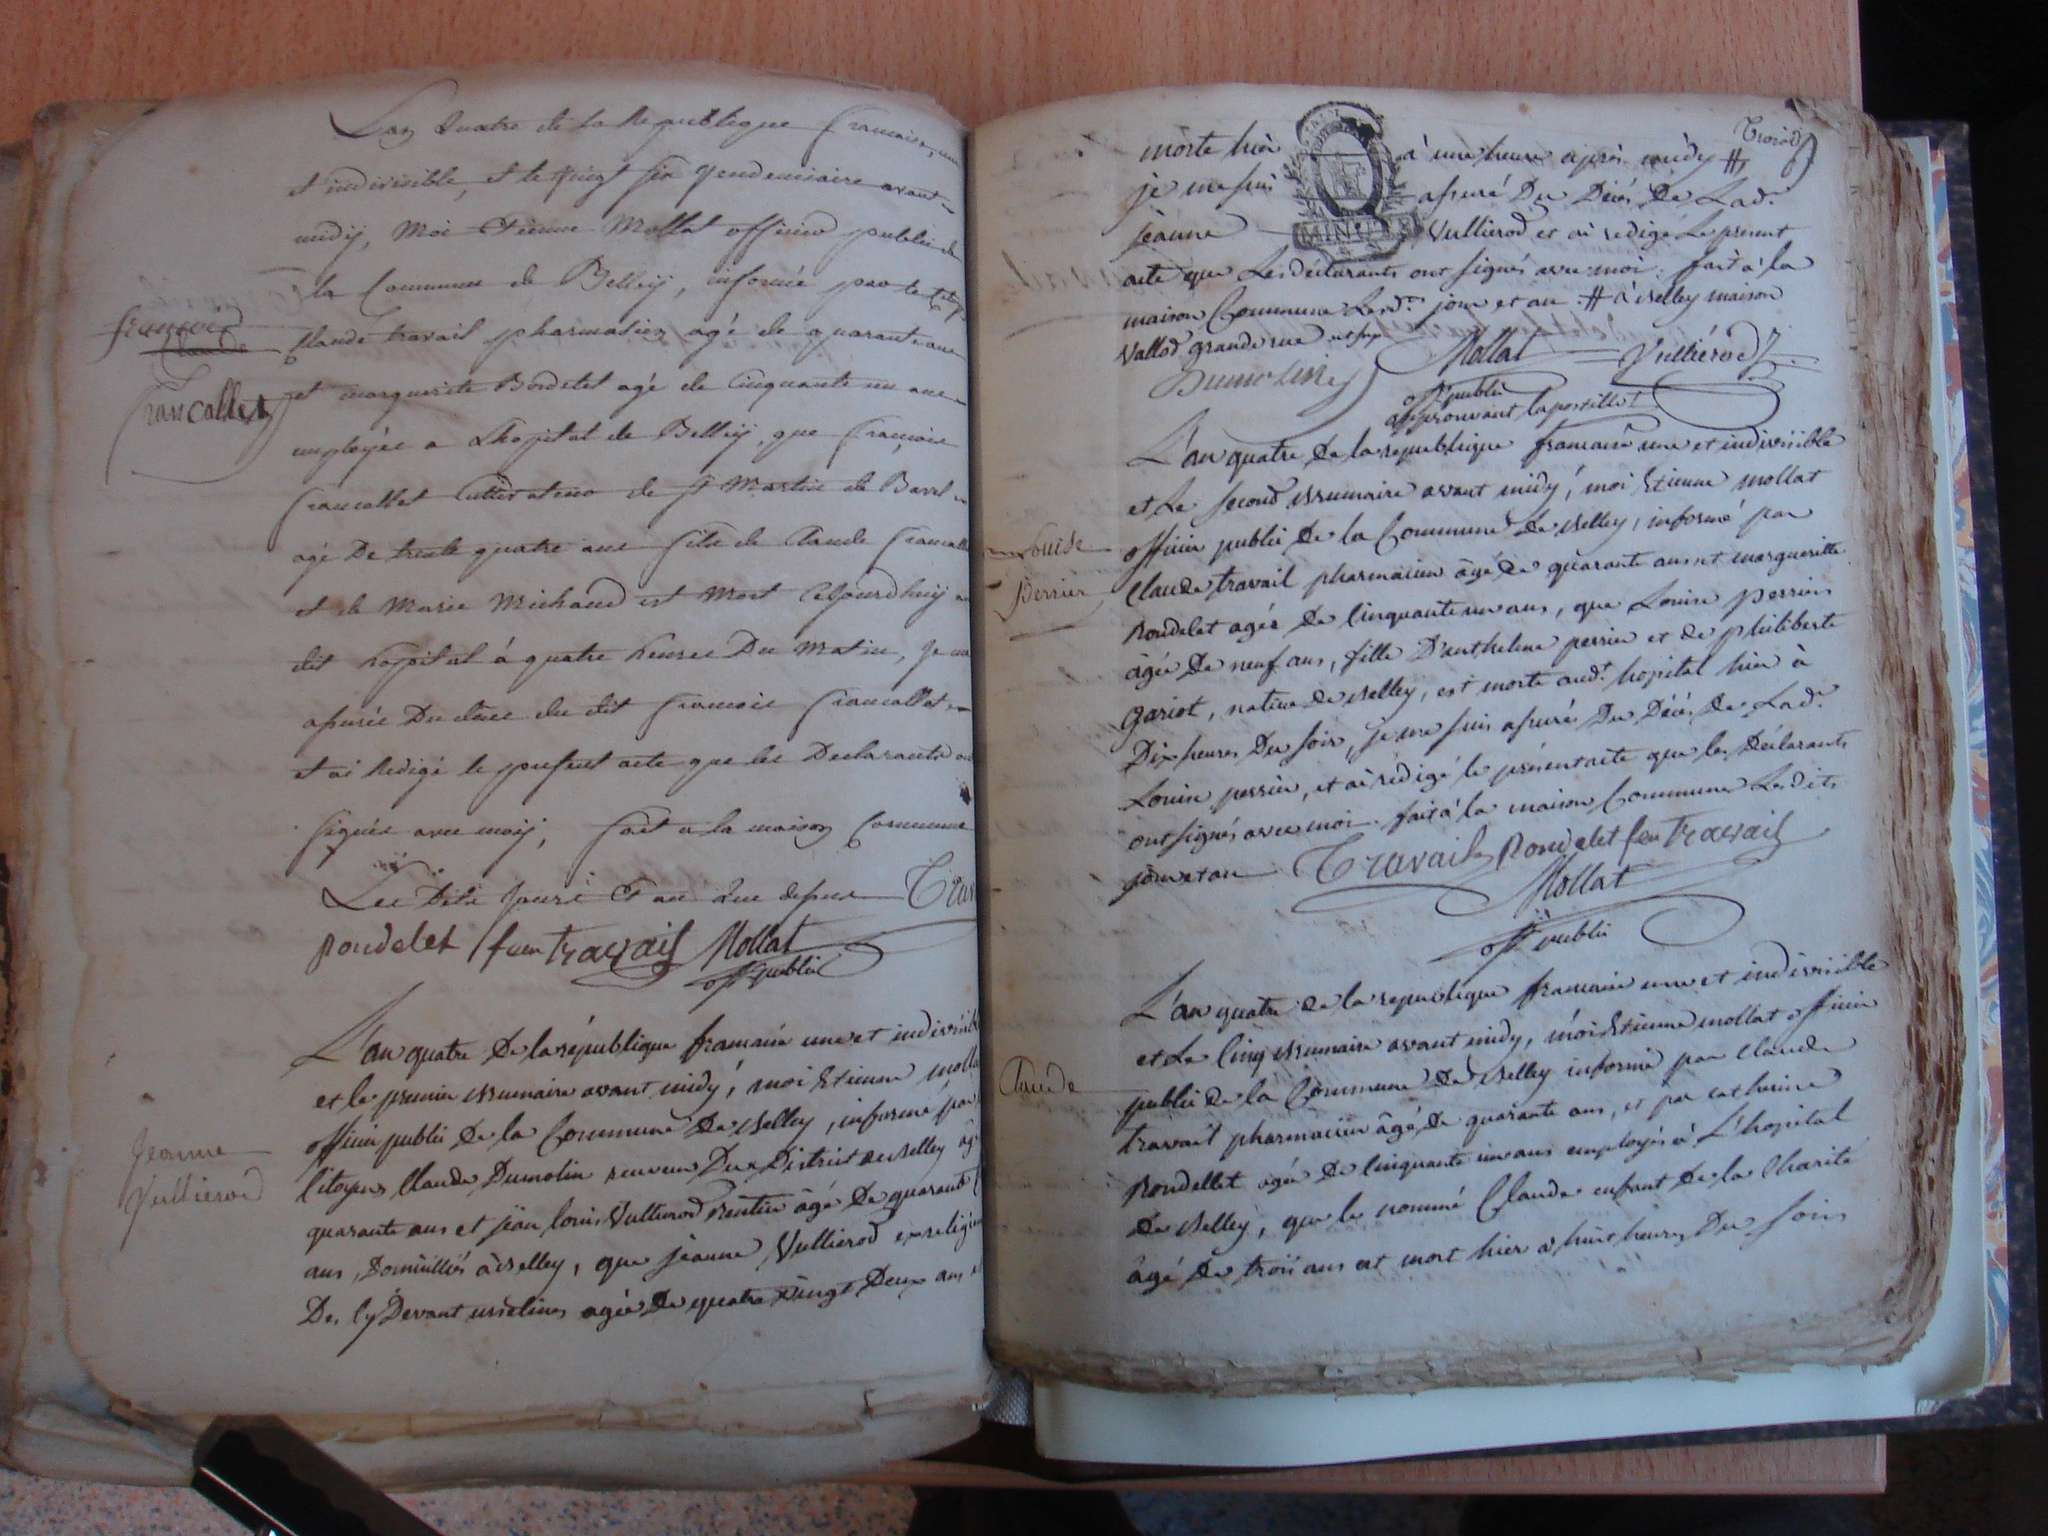 L'an quatre de la République francaise, une
et indivisible, et le vingt six vendemiaire avant
midÿ, Moi Etienne Mollat officier public de
la Commune de Belleÿ, informé par le
Claude travail pharmacien agé de quarante ans
francois
Claude
Francallet
et marguerite Rondelet agé de Cinquante un ans
employés a Lhopital de Belleÿ, que francois
francallet Cultivateur de St Martin de Bavel
agé De trente quatre ans fils de Claude francallet
et de Marie Michaud est Mort Cejourdhuÿ au
dit hopital á quatre heures Du Matin, Je me
assurée Du deces du dit francois francallet
et ai Redigé le present acte que les Declarants on
signés avec moiÿ, fait a la maison Commune
Les Dits Jours Et an Que depus Trav
Rondelet fem Travail Mollat
off public
L'an quatre De la république francaise une et indivisible
et le premier brumaire avant midy, moi Etienne molla
officier public De la Commune De Belley, informé par
Jeanne
Vullierod
Citoyens Claude Dumolin receveur Du District de Belley âgé
quarante ans et jëan louis Vullierod Rentier âgé De quarant
ans, Domiciliés à Belley, que jèanne Vullierod exreligieu
Des Cy Devant urselines agée De quatre vingt Deux ans
Troisd
morte hier à une heure après midÿ #,
je me suis assuré Du Décés De Lade
jèanne Vullierod et ai redigé Le présent
MINUTE
acte que Les déclarants ont signés avec moi. fait à la
maison Commune Lesd. jour et an. # à Belley maison
Vallod grande rue
Mollat Vulliérod
Dumolin
off public
approuvant lapostille
L'an quatre De la republique francaise une et indivisible
et Le second brumaire avant midy, moi Etienne mollat
officier public De la Commune De Belley, informé par
Louise
Perrier
Claude travail pharmacien âgé De quarante ans et marguerite
Rondelet agée De Cinquante un ans, que Louise perrier
âgée De neuf ans, fille D'anthelme perrier et de philiberte
gariot, native de Belley, est morte aud.t hopital hier à
Dix heures Du soir, je me suis assuré Du Décés De Lad.e
Louise perrier, et ai rédigé le présent acte que les Déclarants
ont signés avec moi. fait à la maison Commune Lesdits
jour et an Travail Rondelet fem Travail
Mollat
off public
L'an quatre De la republique francaise une et indivisible
et Le Cinq brumaire avant midy, moi Etienne mollat officier
Claude
public de la Commune De Belley informé par Claude
travail pharmacien âgé De quarante ans, et par catherine
Rondellet agée De Cinquante un ans employés à L'hopital
De Belley, que le nommé Claude enfant De la Charité
âgé De trois ans est mort hier à huit heures Du soir